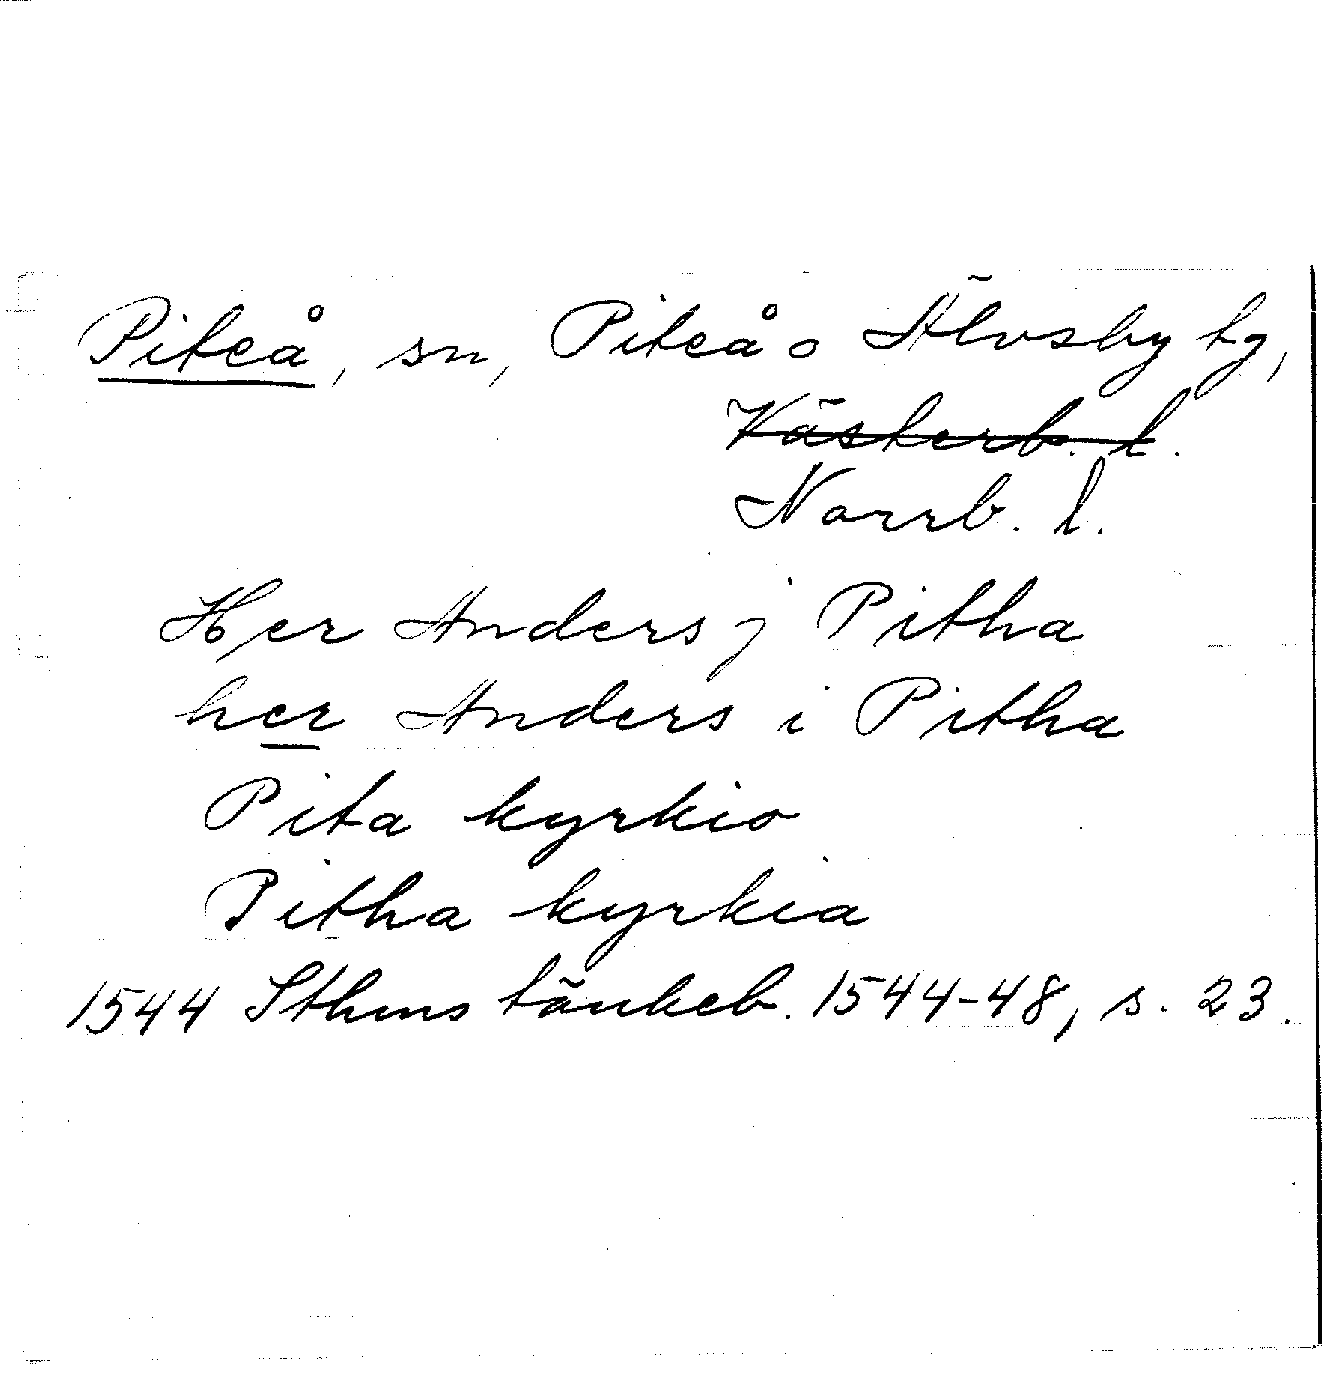 Piteå, sn, Piteå o Älvsby tg,
Västerb. l.
Norrb. l.
Her Anders j Pitha
her Anders i Pitha
Pita kyrkio
Pitha kyrkia
1544 Sthms tänkeb. 1544-48, s. 23.